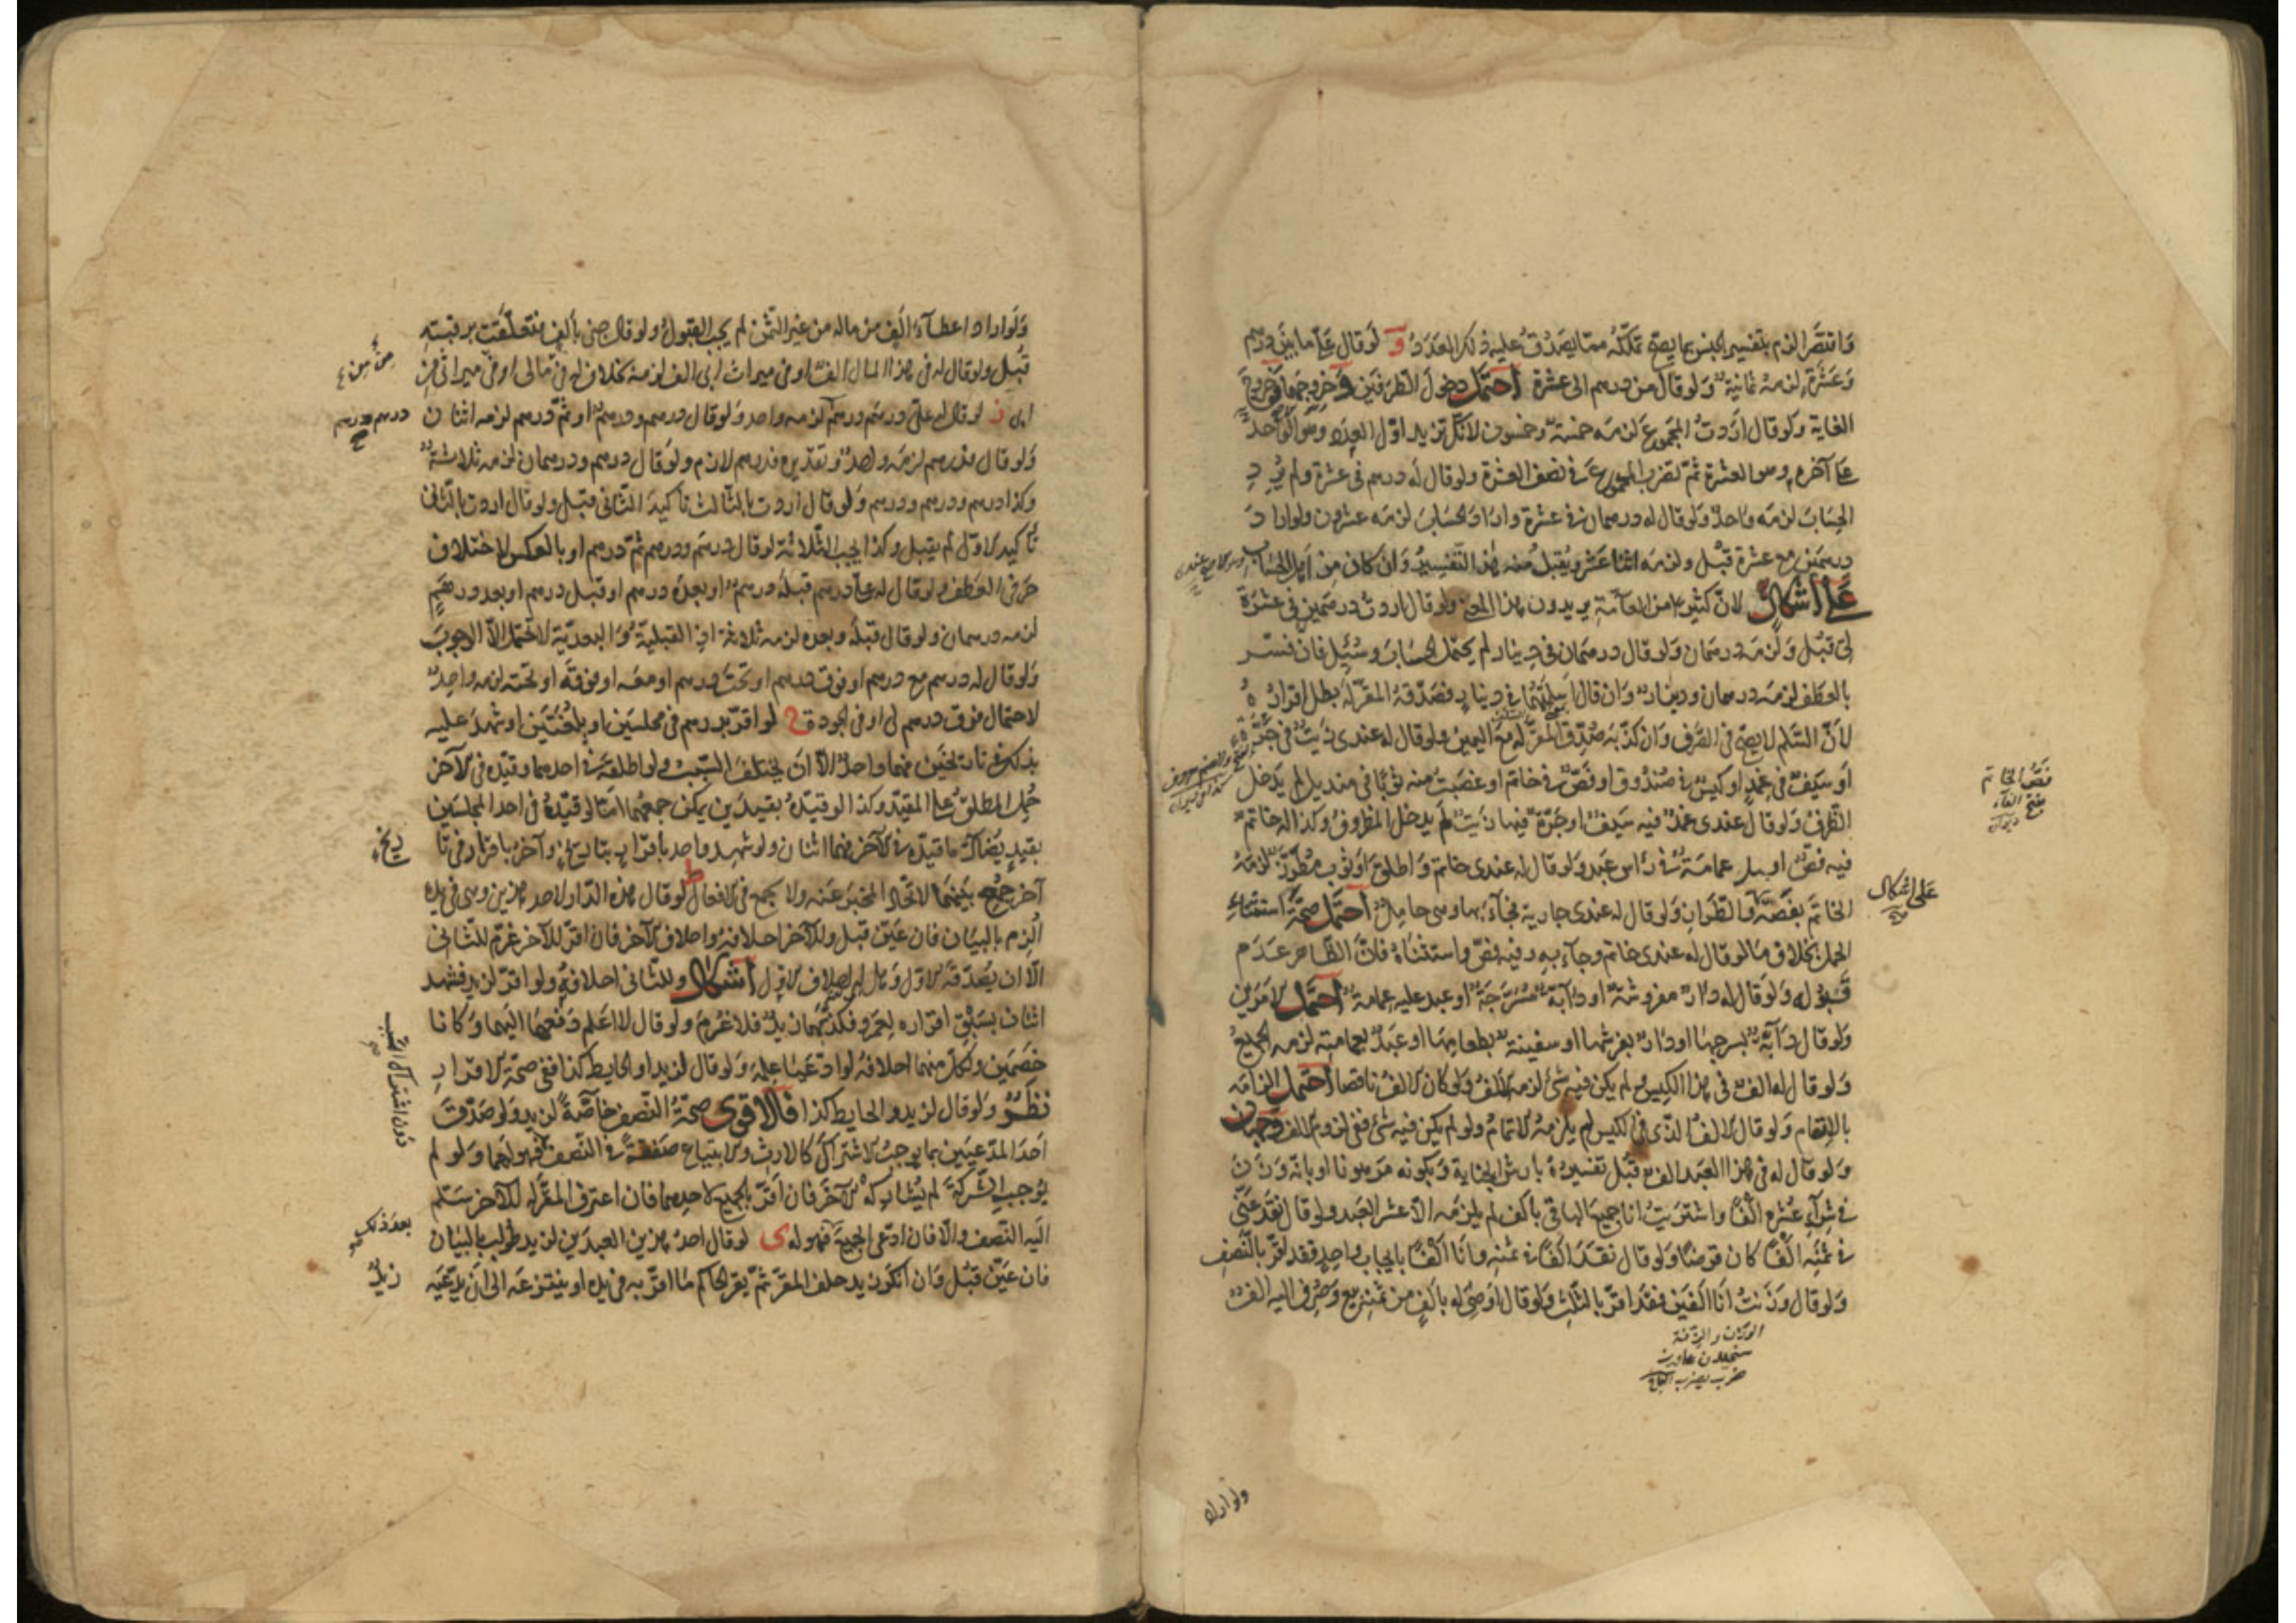 وَاقتصَر الزم بتفسير الجنس بما يصحّ تملّكه ممّا يصدُق عليه ذلك العَدَدُ و لو قال عليّ ما بين درهم
وَعَشَرة لزمهُ ثمانية وَلو قال من درهم الى عشرة احتمل دخول الطرفين وخروجهما وخروج
الغاية ولو قال اردتُ المجموع لزمه خمسة وخمسون لانك تزيد اوّل العدد وهو الواحد
على آخره وهو العشرة ثمّ تضرب المجموع في نصف العشرة ولو قال له درهم في عشرة ولم يُرِدِ
الحسابَ لزمه واحدٌ وَلو قال له درهمان في عشرة واراد الحسَابَ لزمه عشرون ولو اراد
درهمَين مع عشرة قُبل ولزمه اثنا عشر ويُقبلُ منه هذا التفسيرُ وَان كان من اهل الحساب
على اشكال لانّ كثيرا من العامّة يريدون هذا المعنى ولو قال اردت درهمين في عشرة
لى قُبل وَلزمَه درهمان وَلو قال درهمان في دينار لم يحتمل الحساب وَسُئِل فان فسّر
بالعطف لزمه درهمان ودينار وَان قال اسلمتُهُما في دينار فصدّقهُ المقرّ لهُ بطل اقراره
لانّ السّلم لا يصحّ في الصّرف وَان كذّبه صُدِّق المقرّ له مع اليمين ولو قال له عندى زيتٌ في جرّة
او سَيفٌ في غِمدٍ او كيسٌ في صُندُوق او فَصّ في خاتم او غصبتُ منه ثوبًا في منديل لم يَدخل
الظرفُ وَلو قال عندى غمدٌ فيه سَيفٌ او جَرّة فيها زيتٌ لم يدخل المظروفُ وكذا له خاتم
فيه فصّ او عمامَة في رأس عَبد ولو قال له عندى خاتم وَاطلق او ثوب مُطرّز لزمهُ
الخاتَم بفصّه والطرازِ وَلو قال له عندى جارية فجآء بها وهى حاملٌ احتمل صحّة استثناء
الحمل بخلاف مَا لو قال له عندى خاتم وجآء به وفيه فصّ واستثناهُ فانّ الظاهر عَدَم
قَبُوله وَلو قال له دارٌ مفروشة او دابّة مُسْرَجة او عبد عليه عمامة احتمل الامرين
ولو قال دَابّة بسرجها او دارٌ بفرشها او سفينة بطعامها او عبدٌ بعمامته لزمه الجميعُ
ولو قال له الف في هذا الكيس ولم يكن فيه شئ لزمه الالفُ ولو كان الالفُ ناقصا احتمل الزامه
بالاتمام وَلو قال الالفُ الذى في الكيس لم يلزمهُ الاتمامُ ولو لم يكن فيه شئ ففى لزوم الالف وجهان
ولو قال له في هذا العَبد الف قُبل تفسيرهُ بارش الجناية وَبكونه مرهونا او بانّه وَزَنَ
في شِرآءِ عُشرهِ الفًا واشتريتُ انا جميعَ الباقى بالف لم يلزمه الا عشر العَبد ولو قال نقَدَ عَنّى
في ثَمَنه الفًا كان قرضًا وَلو قال نقدَ الفًا في ثمنه وانا الفًا بايجابٍ واحدٍ فقد اقرّ بالنّصف
وَلو قال وَزَنتُ انا الفَين فقد اقرّ بالثُلث وَلو قال اوصى له بالف من ثمنه بيعَ وَصُرف اليه الف
على اشكال
فَصُّ الخاتم
بفتح الفآء
ولو اراد
وَلَو اراد اعطآء الف من ماله من غير الثّمن لم يجب القبول ولو قال جنى بالفٍ فتعلّقت برقبته
قُبل ولو قال له في هذا المال الفٌ او في ميراث ابى الف لزمه بخلاف له في مالى او في ميراثى من
ابى ز لو قال له علىّ درهم درهم لزمه واحد وَلو قال درهم ودرهم او ثمّ درهم لزمه اثنان
وَلو قال فدرهم لزمه واحدٌ وتقديره فدرهم لازم ولو قال درهم ودرهمان لزمه ثلاثة
وكذا درهم ودرهم ودرهم وَلو قال اردت بالثالث تأكيدَ الثانى قبل ولو قال اردت بالثانى
تأكيد الاوّل لم يقبل وكذا يجب الثلاثة لو قال درهم ودرهم ثمّ درهم او بالعكس لاختلاف
حرفى العطف ولو قال له علىّ درهم قبلَه درهم او بعدَه درهم او قبل درهم او بعد درهمٍ
لزمه درهمان ولو قال قبلَه وبعده لزمه ثلاثة اذ القبليّة وَالبعديّة لا تحتمل الّا الوجوبَ
وَلو قال له درهم مع درهم او فوق درهم او تحت درهم او معه او فوقَه او تحته لزمه واحدٌ
لاحتمال فوق درهم لى او في الجودة ح لو اقرّ بدرهم في مجلسَين او بلُغَتَين او شهدَ عليه
بذلك في تاريخَين فهما واحدٌ الّا ان يختلف السّببُ ولو اطلقه في احدهما وقيّده في الآخر
حُمل المطلقُ على المقيّد وكذا لو قيّدهُ بقيدَين يمكن جمعهما امّا لو قيّدهُ في احد المجلسَين
بقيدٍ يُضادّ ما قيّده في الآخر فهما اثنان ولو شهد واحد باقرار بتاريخ وآخر باقرار في تا
آخر جُمع بينهُما لاتّحاد المخبَر عنه ولا يجمع في الافعال ط لو قال هذه الدار لاحد هذين وهى في يده
اُلزم بالبيان فان عَيّن قبل وللآخر احلافهُ واحلاف الآخر فان اقرّ للآخر غرّم للثانى
الّا ان يُصدّقه الاوّل وَهل له احلاف الاوّل اشكال وللثّانى احلافهُ ولو اقرّ لزيد فشهد
اثنان بسَبق اقراره لعمرو فكذّبهما زيدٌ فلا غُرمَ ولو قال لا اعلم دَفعهَا اليهما وَكانا
خَصمَين ولكلّ منهما احلافه لو ادّعَيا علمه وَلو قال لزيد او الحايط كذا ففى صحّة الاقرار
نظرٌ ولو قال لزيد والحايط كذا فالاقوى صحّةُ النّصف خاصّةً لزيد ولو صَدّق
اَحَدَ المدّعيين بما يوجبُ الاشتراك كالارث والابتياع صَفقةً في النّصف فهو لهما وَلو لم
يُوجب الشركةَ لم يُشاركهُ الآخر فان اقرّ بالجميع لاحدهما فان اعترف المقرّ له للآخر سَلّم
اليَه النّصف والّا فان ادّعى الجميعَ فهو له ى لو قال احدُ هذين العبدَين لزيد طُولب بالبيان
فان عَيّن قُبل وَان انكرَ زيد حلف المقرّ ثمّ يقرّ الحاكم مَا اقرّ به في يده او ينتزعه الى ان يدّعيه
درهم درهم
ريخ
دون اشتراك السّبب
بعدَ ذلك
زيدٌ